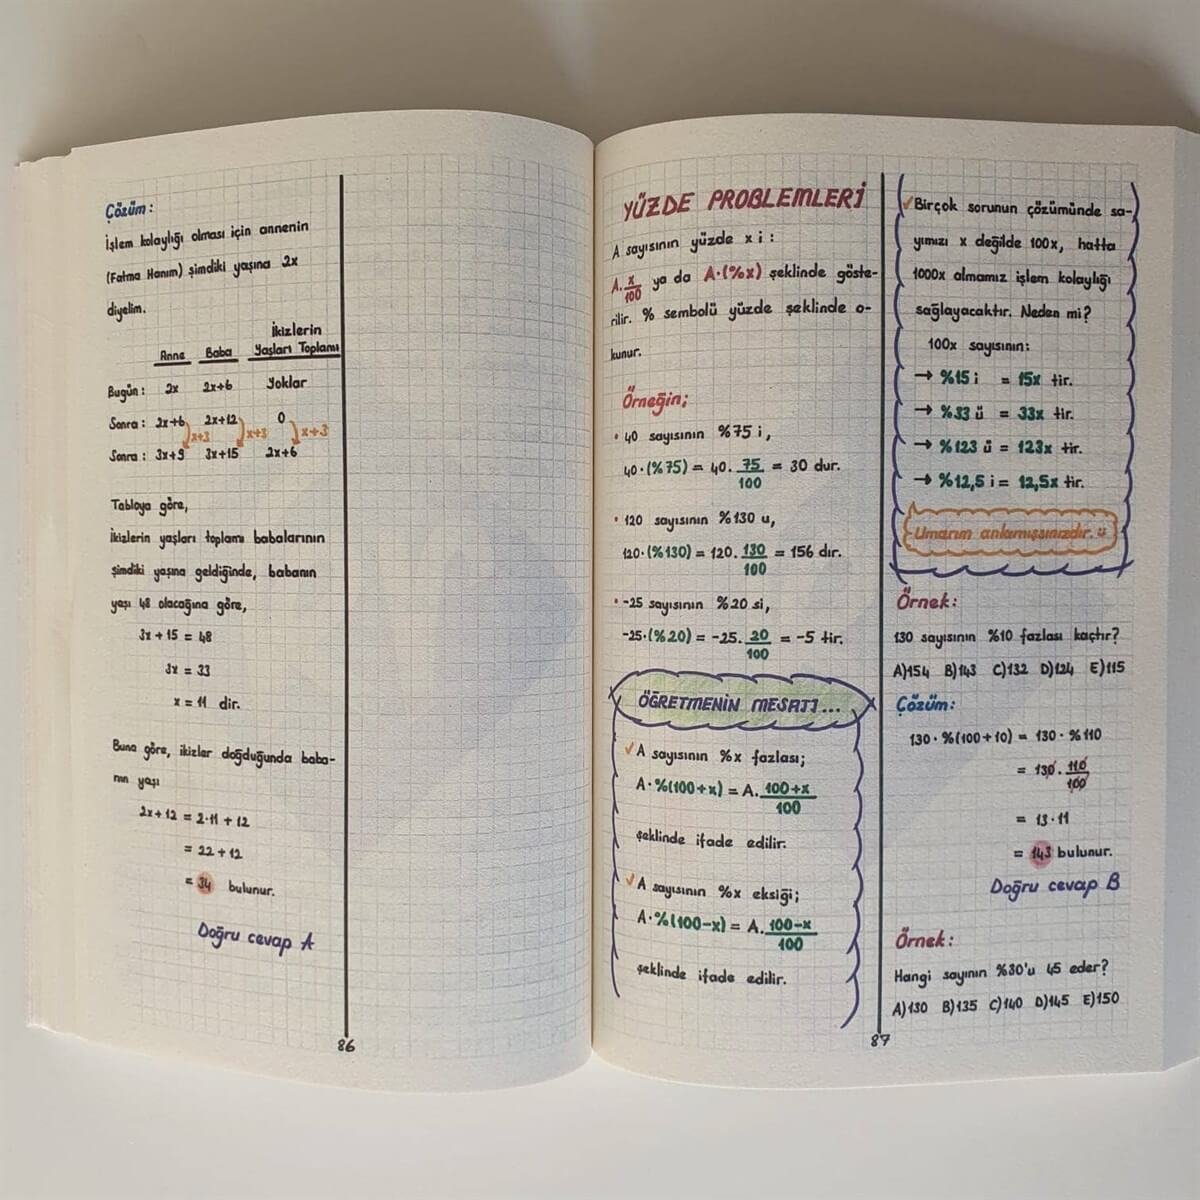 Çözüm:
İşlem kolaylığı olması için annenin
(Fatma Hanım) şimdiki yaşına 2x
diyelim.
İkizlerin
Anne Baba Yaşları Toplamı
Bugün: 2x 2x+6 Yoklar
Sonra: 2x+6 2x+12 0
x+3 x+3 x+3
Sonra: 3x+9 3x+15 2x+6
Tabloya göre,
İkizlerin yaşları toplamı babalarının
şimdiki yaşına geldiğinde, babanın
yaşı 48 olacağına göre,
3x+15 = 48
3x = 33
x = 11 dir.
Buna göre, ikizler doğduğunda baba-
nın yaşı
2x+12 = 2·11 + 12
= 22 + 12
= 34 bulunur.
Doğru cevap A
86
YÜZDE PROBLEMLERİ
A sayısının yüzde x i:
A. x/100 ya da A·(%x) şeklinde göste-
rilir. % sembolü yüzde şeklinde o-
kunur.
Örneğin;
• 40 sayısının %75 i,
40·(%75) = 40. 75/100 = 30 dur.
• 120 sayısının %130 u,
120·(%130) = 120. 130/100 = 156 dır.
• -25 sayısının %20 si,
-25·(%20) = -25. 20/100 = -5 tir.
ÖĞRETMENİN MESAJI...
✓ A sayısının %x fazlası;
A·%(100+x) = A. 100+x/100
şeklinde ifade edilir.
✓ A sayısının %x eksiği;
A·%(100-x) = A. 100-x/100
şeklinde ifade edilir.
✓ Birçok sorunun çözümünde sa-
yımızı x değilde 100x, hatta
1000x almamız işlem kolaylığı
sağlayacaktır. Neden mi?
100x sayısının:
→ %15 i = 15x tir.
→ %33 ü = 33x tir.
→ %123 ü = 123x tir.
→ %12,5 i = 12,5x tir.
Umarım anlamışsınızdır. ü
Örnek:
130 sayısının %10 fazlası kaçtır?
A)154 B)143 C)132 D)124 E)115
Çözüm:
130·%(100+10) = 130·%110
= 130. 110/100
= 13·11
= 143 bulunur.
Doğru cevap B
Örnek:
Hangi sayının %30'u 45 eder?
A)130 B)135 C)140 D)145 E)150
87